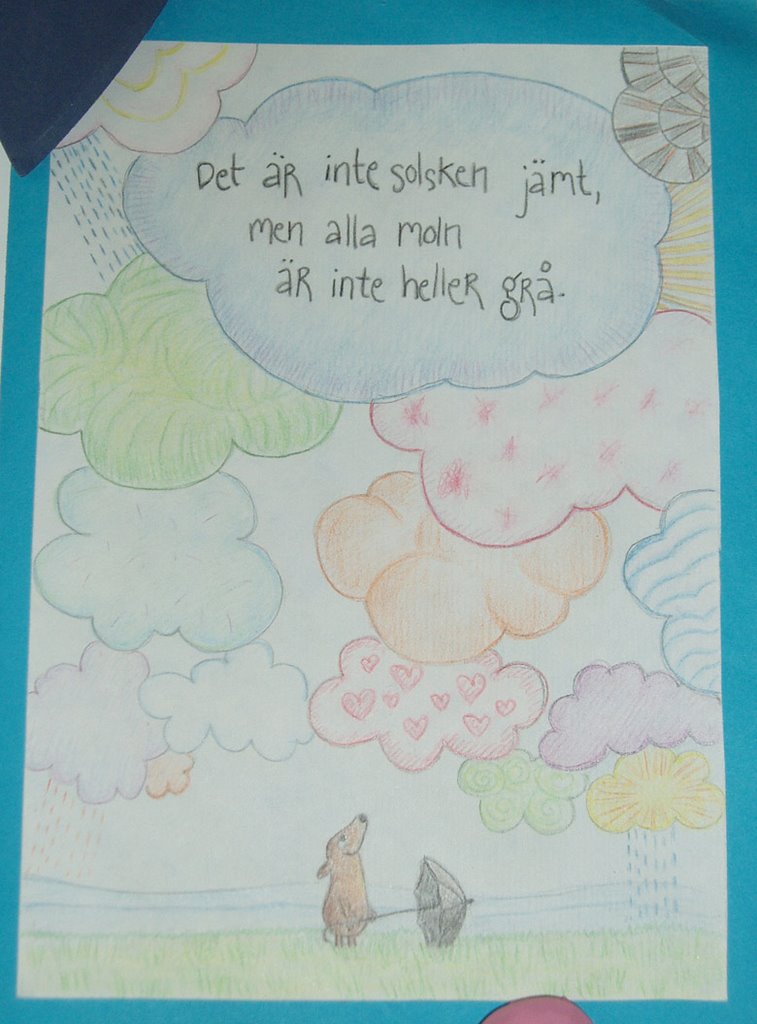 Det är inte solsken jämt,
men alla moln
är inte heller grå.